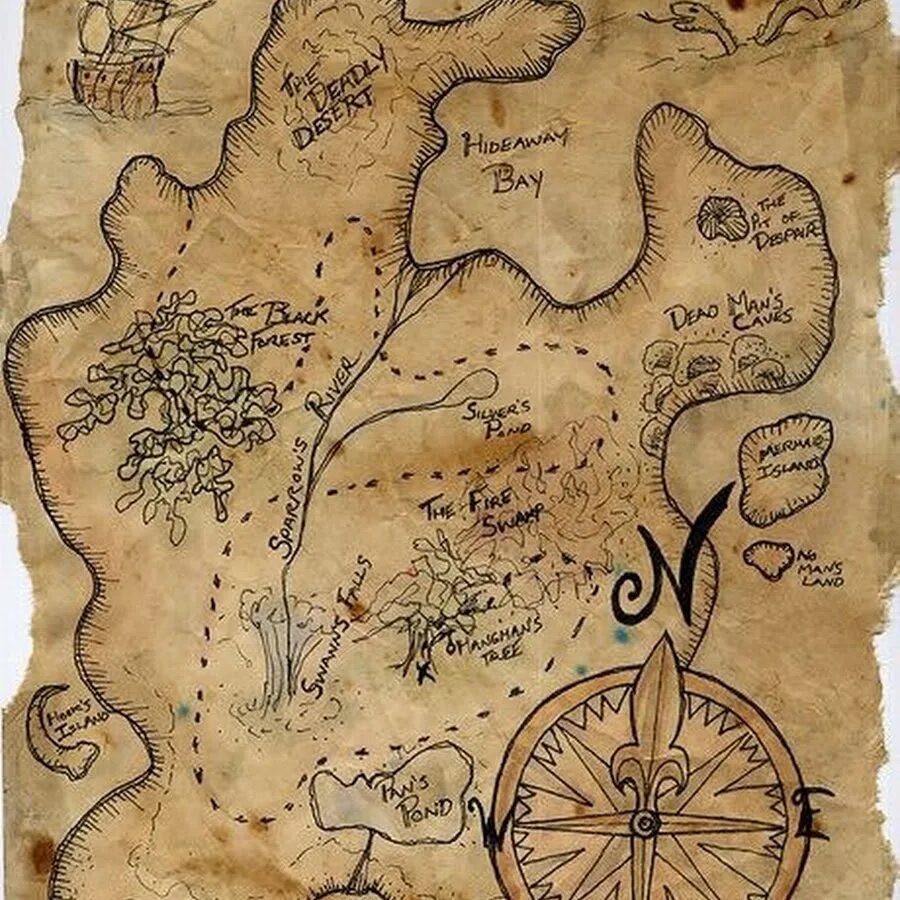 THE
DEADLY
DESERT
HIDEAWAY
BAY
THE
PIT OF
DESPAIR
THE BLACK
FOREST
DEAD MAN'S
CAVES
SPARROW'S RIVER
SILVER'S
POND
MERMAID
ISLAND
THE FIRE
SWAMP
NO
MAN'S
LAND
N
SWANN'S FALLS
HANGMAN'S
TREE
X
HOOK'S
ISLAND
PAN'S
POND
W
E